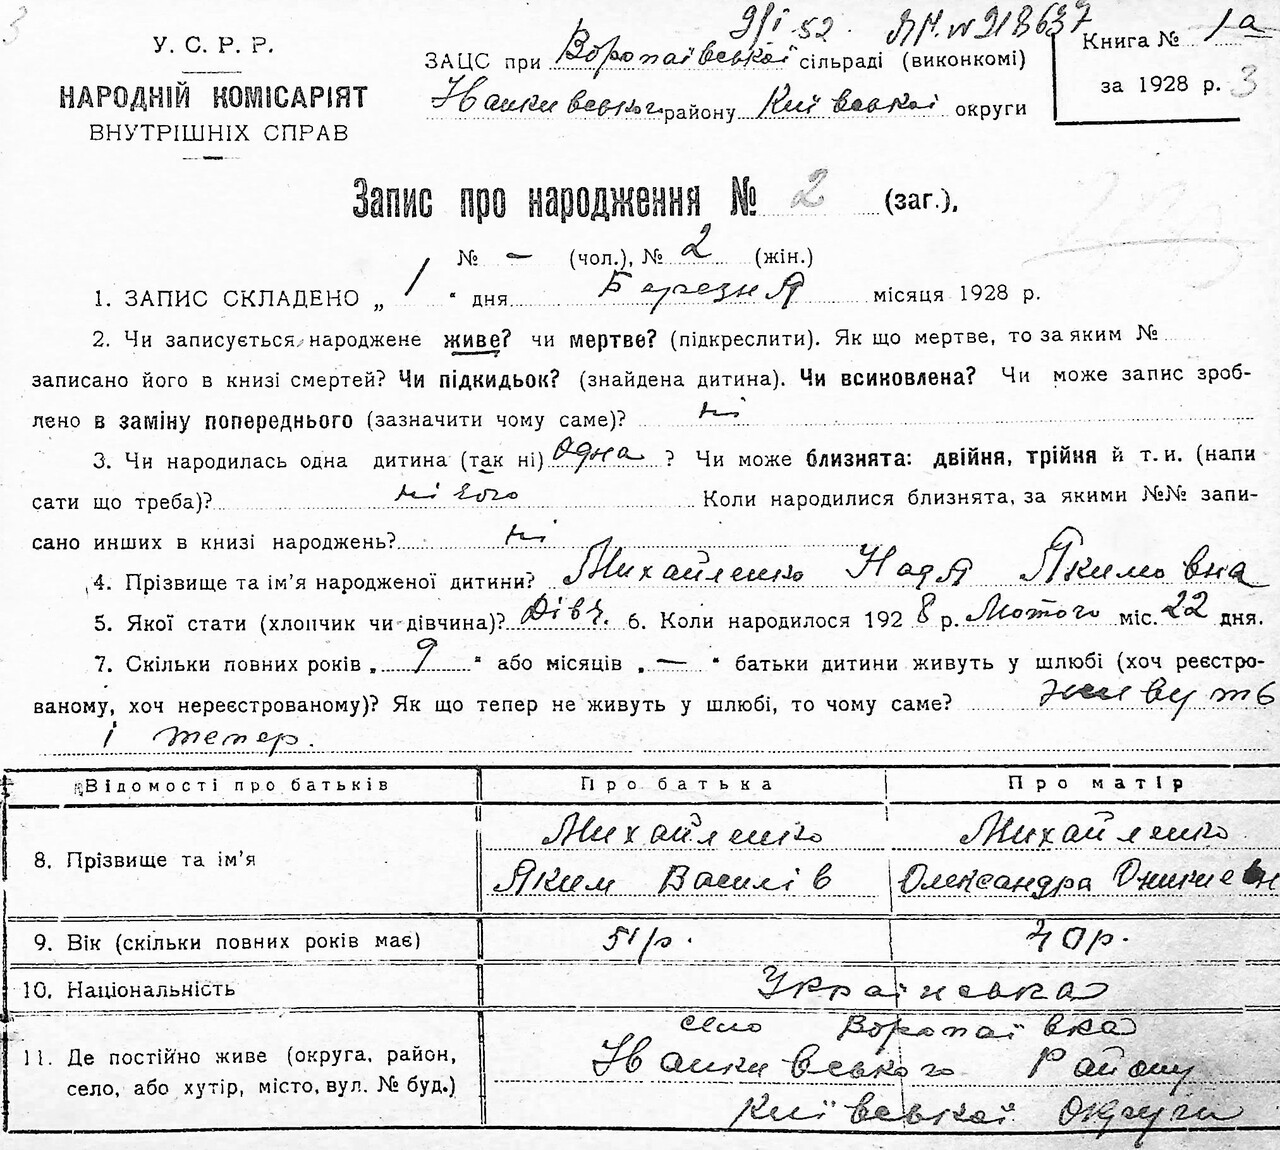 3
9/I-52. ЯН. № 218637
У. С. Р. Р.
НАРОДНІЙ КОМІСАРІЯТ
ВНУТРІШНІХ СПРАВ
ЗАЦС при Воропаївської сільраді (виконкомі)
району Київської округи
Книга № 1а
за 1928 р. 3
Запис про народження № 2 (заг.),
№ — (чол.), № 2 (жін.)
1. ЗАПИС СКЛАДЕНО „ 1 " дня Березня місяця 1928 р.
2. Чи записується народжене живе? чи мертве? (підкреслити). Як що мертве, то за яким №
записано його в книзі смертей? Чи підкидьок? (знайдена дитина). Чи всиновлена? Чи може запис зроб-
лено в заміну попереднього (зазначити чому саме)? ні
3. Чи народилась одна дитина (так ні) одна ? Чи може близнята: двійня, трійня й т. и. (напи
сати що треба)? нічого Коли народилися близнята, за якими №№ запи-
сано инших в книзі народжень? ні
4. Прізвище та ім'я народженої дитини? Михайленко Надя Якимовна
5. Якої стати (хлопчик чи дівчина)? Дівч. 6. Коли народилося 1928 р. Лютого міс. 22 дня.
7. Скільки повних років „ 9 " або місяців „ — " батьки дитини живуть у шлюбі (хоч реєстро-
ваному, хоч нереєстрованому)? Як що тепер не живуть у шлюбі, то чому саме? живуть
і тепер.
Відомості про батьків Про батька Про матір
8. Прізвище та ім'я Михайленко Яким Василів Михайленко Олександра
9. Вік (скільки повних років має) 51 р. 40 р.
10. Національність Українська
11. Де постійно живе (округа, район,
село, або хутір, місто, вул. № буд.)
село Воропаївка
Району
Київської округи